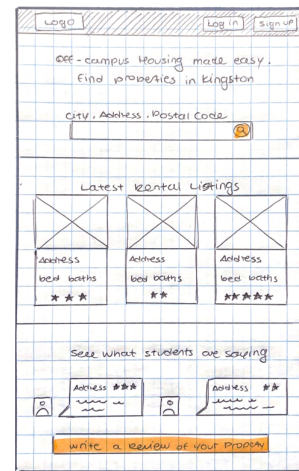 Logo
Log in
Sign up
Off-campus Housing made easy.
Find properties in Kingston
City, Address, Postal Code
Latest Rental Listings
Address
bed baths
Address
bed baths
Address
bed baths
See what students are saying
Address
Address
Write a Review of your Property